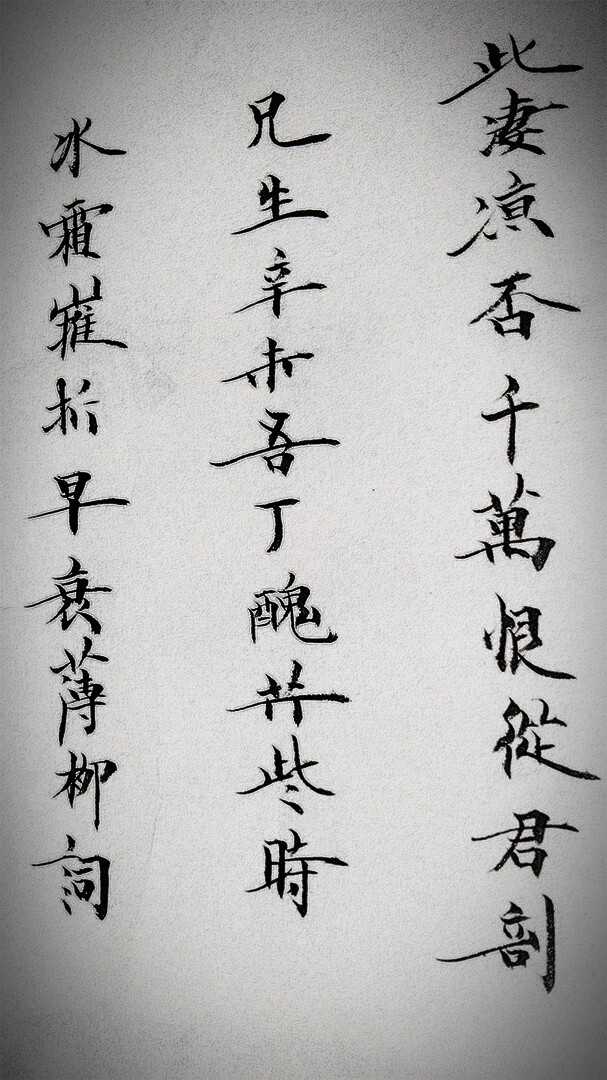 此凄凉否千萬恨從君剖
兄生辛未吾丁醜共些時
冰霜摧折早衰薄柳詞